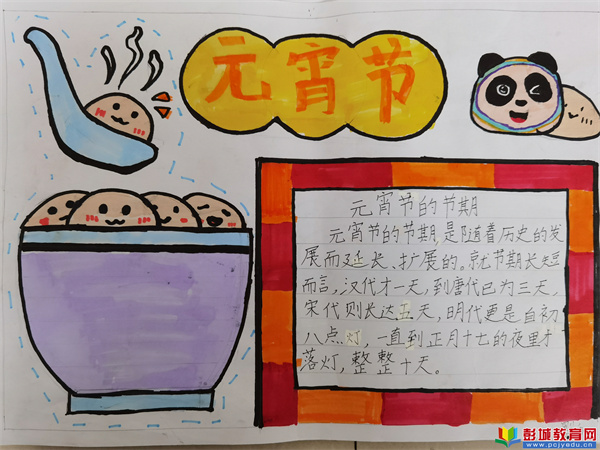 元宵节
元宵节的节期
元宵节的节期是随着历史的发
展而延长、扩展的。就节期长短
而言，汉代才一天，到唐代已为三天，
宋代则长达五天，明代更是自初
八点灯，一直到正月十七的夜里才
落灯，整整十天。
彭城教育网
www.pcjyedu.cn